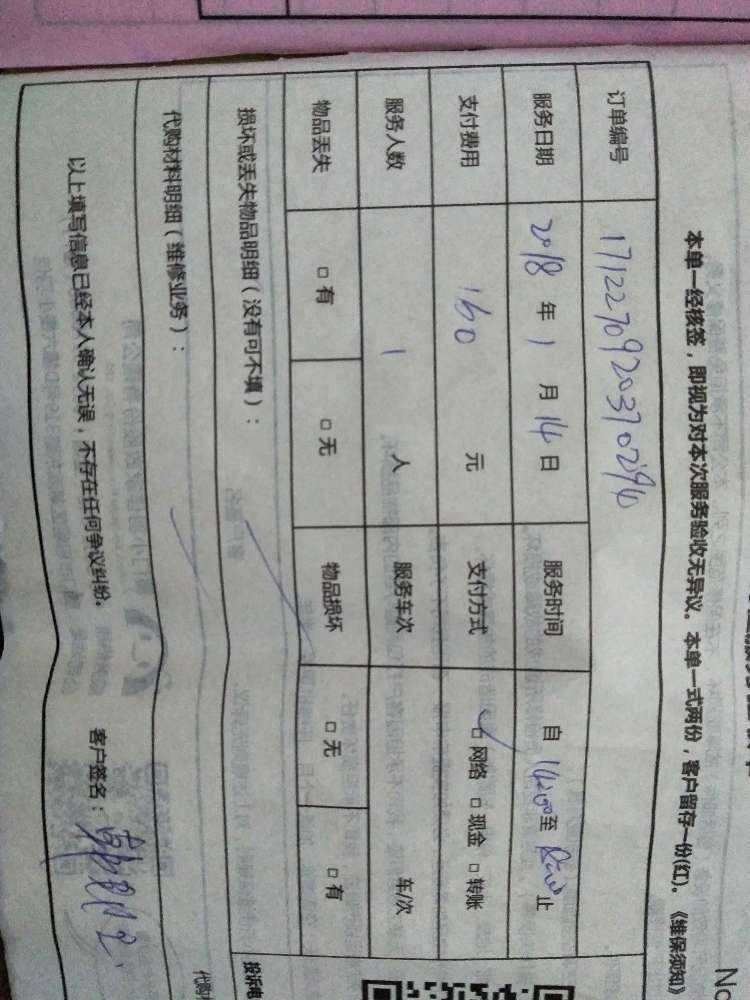 本单一经核签，即视为对本次服务验收无异议。本单一式两份，客户留存一份(红)。《维保须知》
订单编号 171227092037029
服务日期 2018 年 1 月 14 日 服务时间 自 14:00 至 止
支付费用 160 元 支付方式 □ 网络 □ 现金 □ 转账
服务人数 1 人 服务车次 车/次
物品丢失 □ 有 □ 无 物品损坏 □ 无 □ 有
损坏或丢失物品明细（没有可不填）：
代购材料明细（维修业务）：
以上填写信息已经本人确认无误，不存在任何争议纠纷。 客户签名：
投诉电
代购
No